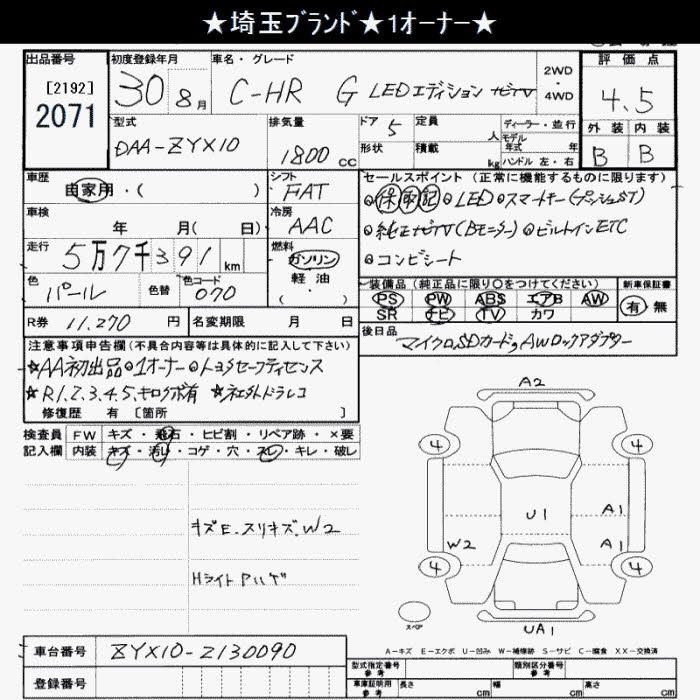 ★埼玉ブランド★1オーナー★
出品番号 初度登録年月 車名・グレード 評価点
[2192]
2071
30 8月 C-HR G LEDエディション ナビTV 2WD 4WD 4.5
型式 排気量 ドア 定員 ディーラー・並行 外装 内装
DAA-ZYX10 1800cc 5 人 モデル年式 年 B B
形状 積載 kg ハンドル 左・右
車歴 シフト セールスポイント(正常に機能するものに限ります)
自家用・( ) FAT ◎保取記◎LED◎スマートキー(プッシュST)
車検 冷房 ◎純正ナビTV(Bモニター)◎ビルトインETC
年 月( 日) AAC ◎コンビシート
走行 燃料
5万7千391km ガソリン
軽油
( ・ )
色 色替 色コード 装備品(純正品に限り○をつけてください) 新車保証書
パール 070 PS PW ABS エアB AW 有・無
SR ナビ TV カワ
R券 11,270円 名変期限 月 日 後日品
マイクロSDカード,AWロックアダプター
注意事項申告欄(不具合内容等は具体的に記入して下さい)
★AA初出品◎1オーナー◎トヨタセーフティセンス
★R1.2.3.4.5.キロク卩有 ★社外ドラレコ
修復歴 有 [箇所 ]
検査員 FW キズ・飛石・ヒビ割・リペア跡・×要
記入欄 内装 キズ・汚れ・コゲ・穴・スレ・キレ・破レ
キズE.スリキズ.W2
Hライト ハゲ
A2
4 4
U1 A1
W2 A1
4 4
スペア UA1
A-キズ E-エクボ U-凹み W-補修跡 S-サビ C-腐食 XX-交換済
車台番号 ZYX10-2130090
登録番号
型式指定番号 参考 類別区分番号 参考
車庫証明用 参考 長さ cm 幅 cm 高さ cm